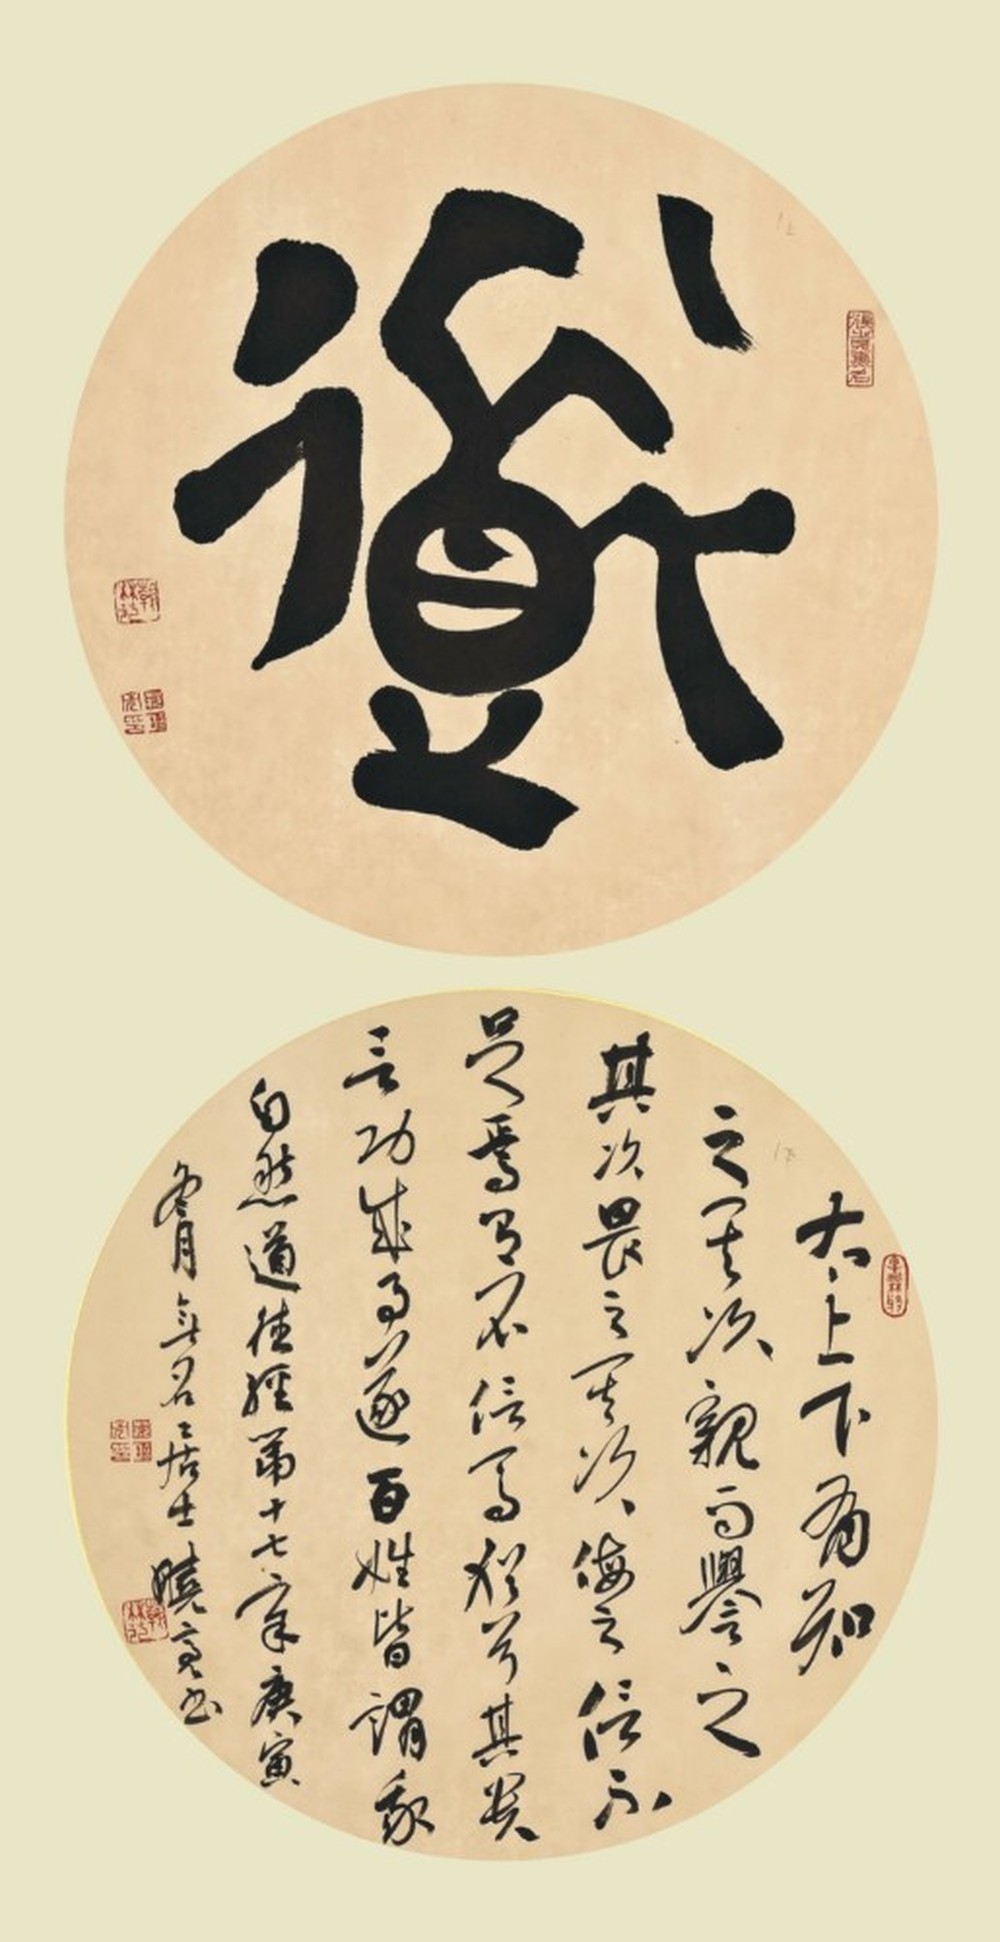 道
太上下有知
之其次親而譽之
其次畏之其次侮之信不
足焉有不信焉猶兮其貴
言功成事遂百姓皆謂我
自然道德經第十七章庚寅
冬月無名居士曉亮書